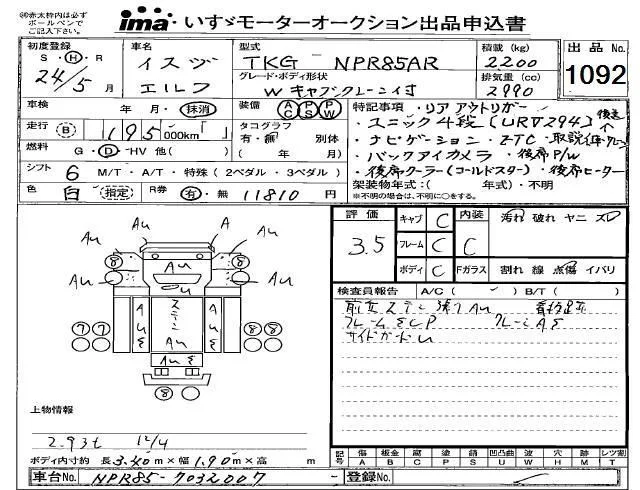 ※赤太枠内は必ず
ボールペンで
ご記入下さい。
ima・いすゞモーターオークション出品申込書
初度登録
S・H・R
24/5月
車名
イスヅ
エルフ
型式
TKG - NPR85AR
グレード・ボディ形状
Wキャブクレーン付
積載 (kg)
2200
排気量 (cc)
2990
出品No.
1092
車検 年・月・抹消
装備 AC PS PW
走行 B 195000km
タコグラフ
有・無 別体
( 年 月)
燃料 G・D・HV 他( )
シフト 6 M/T・A/T・特殊(2ペダル・3ペダル)
色 白 指定 R券 有・無 11810円
特記事項・リアアウトリガー
・ユニック4段(URV294)
・ナビゲーション・ETC・取説
・バックアイカメラ・後席P/W
・後席クーラー(コールドスター)・後席ヒーター
架装物年式:( 年式)・不明
※不明の場合は、不明に○をする。
評価 キャブ C 内装 汚れ 破れ ヤニ ズレ
3.5 フレーム C C
ボディ C Fガラス 割れ 線 点傷 イバリ
検査員報告 A/C( ✓ )B/T( )
Au Au A Au
8 8
Au
ステン
7 7 8 8
Au
上物情報
2.93t 12/4
ボディ内寸約 長3.40m×幅1.90m×高 m
車台No. NPR85-7032007
記号 傷A 板金B 腐C 塗P サビS 凹凸U 曲W 穴H 欠X 跡M レツ割T
登録No.